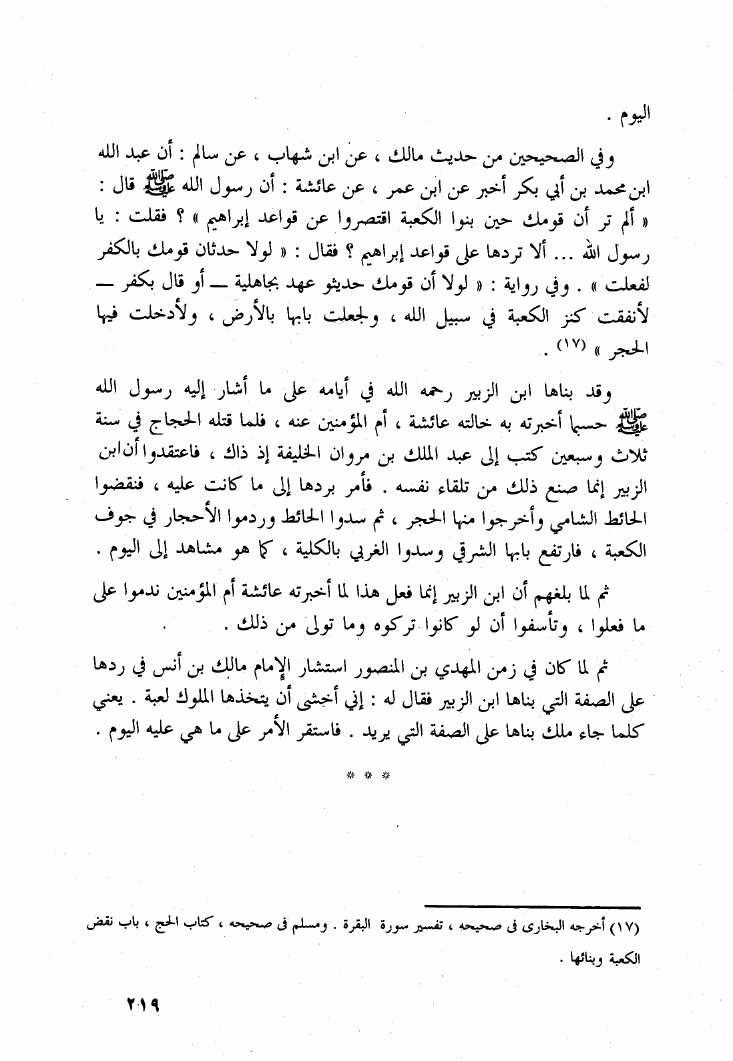 اليوم .
وفي الصحيحين من حديث مالك ، عن ابن شهاب ، عن سالم : أن عبد الله
ابن محمد بن أبي بكر أخبر عن ابن عمر ، عن عائشة : أن رسول الله ﷺ قال :
« ألم تر أن قومك حين بنوا الكعبة اقتصروا عن قواعد إبراهيم » ؟ فقلت : يا
رسول الله ... ألا تردها على قواعد إبراهيم ؟ فقال : « لولا حدثان قومك بالكفر
لفعلت » . وفي رواية : « لولا أن قومك حديثو عهد بجاهلية ــ أو قال بكفر ــ
لأنفقت كنز الكعبة في سبيل الله ، ولجعلت بابها بالأرض ، ولأدخلت فيها
الحجر » (١٧) .
وقد بناها ابن الزبير رحمه الله في أيامه على ما أشار إليه رسول الله
ﷺ حسبما أخبرته به خالته عائشة ، أم المؤمنين عنه ، فلما قتله الحجاج في سنة
ثلاث وسبعين كتب إلى عبد الملك بن مروان الخليفة إذ ذاك ، فاعتقدوا أن ابن
الزبير إنما صنع ذلك من تلقاء نفسه . فأمر بردها إلى ما كانت عليه ، فنقضوا
الحائط الشامي وأخرجوا منها الحجر ، ثم سدوا الحائط وردموا الأحجار في جوف
الكعبة ، فارتفع بابها الشرقي وسدوا الغربي بالكلية ، كما هو مشاهد إلى اليوم .
ثم لما بلغهم أن ابن الزبير إنما فعل هذا لما أخبرته عائشة أم المؤمنين ندموا على
ما فعلوا ، وتأسفوا أن لو كانوا تركوه وما تولى من ذلك .
ثم لما كان في زمن المهدي بن المنصور استشار الإمام مالك بن أنس في ردها
على الصفة التي بناها ابن الزبير فقال له : إني أخشى أن يتخذها الملوك لعبة . يعني
كلما جاء ملك بناها على الصفة التي يريد . فاستقر الأمر على ما هي عليه اليوم .
* * *
(١٧) أخرجه البخارى فى صحيحه ، تفسير سورة البقرة . ومسلم فى صحيحه ، كتاب الحج ، باب نقض
الكعبة وبنائها .
٢١٩